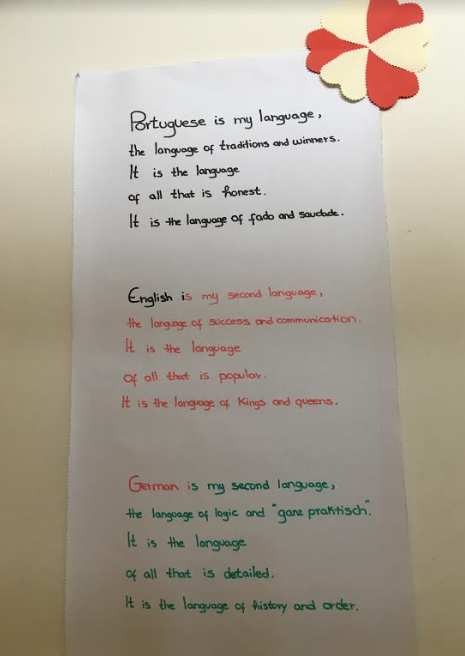 Portuguese is my language,
the language of traditions and winners.
It is the language
of all that is honest.
It is the language of fado and saudade.
English is my second language,
the language of success and communication.
It is the language
of all that is popular.
It is the language of Kings and queens.
German is my second language,
the language of logic and "ganz praktisch".
It is the language
of all that is detailed.
It is the language of history and order.